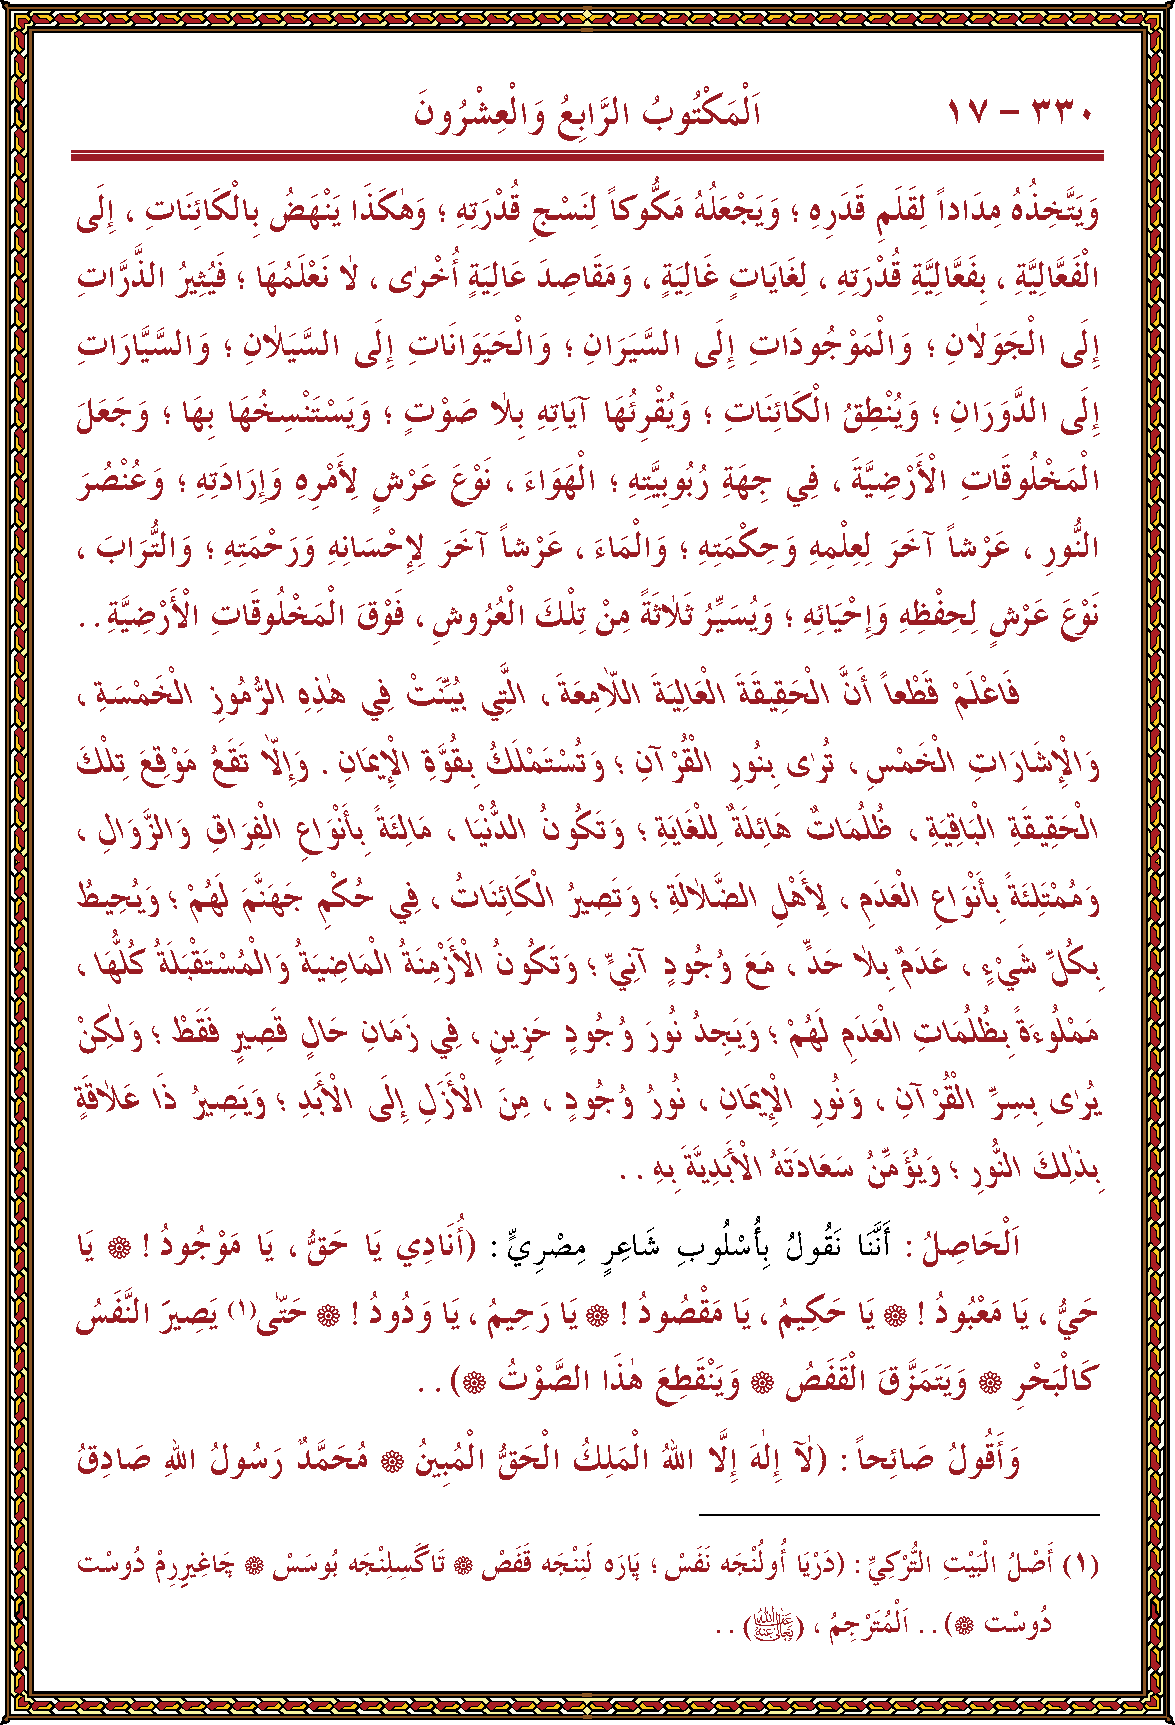 ٣٣٠ – ١٧ اَلْمَكْتُوبُ الرَّابِعُ وَالْعِشْرُونَ
وَيَتَّخِذُهُ مِدَاداً لِقَلَمِ قَدَرِهِ ؛ وَيَجْعَلُهُ مَكُّوكاً لِنَسْجِ قُدْرَتِهِ ؛ وَهٰكَذَا يَنْهَضُ بِالْكَائِنَاتِ ، إِلَى
الْفَعَّالِيَّةِ ، بِفَعَّالِيَّةِ قُدْرَتِهِ ، لِغَايَاتٍ غَالِيَةٍ ، وَمَقَاصِدَ عَالِيَةٍ أُخْرٰى ، لَا نَعْلَمُهَا ؛ فَيُثِيرُ الذَّرَّاتِ
إِلَى الْجَوَلَانِ ؛ وَالْمَوْجُودَاتِ إِلَى السَّيَرَانِ ؛ وَالْحَيَوَانَاتِ إِلَى السَّيَلَانِ ؛ وَالسَّيَّارَاتِ
إِلَى الدَّوَرَانِ ؛ وَيُنْطِقُ الْكَائِنَاتِ ؛ وَيُقْرِئُهَا آيَاتِهِ بِلَا صَوْتٍ ؛ وَيَسْتَنْسِخُهَا بِهَا ؛ وَجَعَلَ
الْمَخْلُوقَاتِ الْأَرْضِيَّةَ ، فِي جِهَةِ رُبُوبِيَّتِهِ ؛ الْهَوَاءَ ، نَوْعَ عَرْشٍ لِأَمْرِهِ وَإِرَادَتِهِ ؛ وَعُنْصُرَ
النُّورِ ، عَرْشاً آخَرَ لِعِلْمِهِ وَحِكْمَتِهِ ؛ وَالْمَاءَ ، عَرْشاً آخَرَ لِإِحْسَانِهِ وَرَحْمَتِهِ ؛ وَالتُّرَابَ ،
نَوْعَ عَرْشٍ لِحِفْظِهِ وَإِحْيَائِهِ ؛ وَيُسَيِّرُ ثَلَاثَةً مِنْ تِلْكَ الْعُرُوشِ ، فَوْقَ الْمَخْلُوقَاتِ الْأَرْضِيَّةِ . .
فَاعْلَمْ قَطْعاً أَنَّ الْحَقِيقَةَ الْعَالِيَةَ اللَّامِعَةَ ، الَّتِي بُيِّنَتْ فِي هٰذِهِ الرُّمُوزِ الْخَمْسَةِ ،
وَالْإِشَارَاتِ الْخَمْسِ ، تُرٰى بِنُورِ الْقُرْآنِ ؛ وَتُسْتَمْلَكُ بِقُوَّةِ الْإِيمَانِ . وَإِلَّا تَقَعُ مَوْقِعَ تِلْكَ
الْحَقِيقَةِ الْبَاقِيَةِ ، ظُلُمَاتٌ هَائِلَةٌ لِلْغَايَةِ ؛ وَتَكُونُ الدُّنْيَا ، مَالِئَةً بِأَنْوَاعِ الْفِرَاقِ وَالزَّوَالِ ،
وَمُمْتَلِئَةً بِأَنْوَاعِ الْعَدَمِ ، لِأَهْلِ الضَّلَالَةِ ؛ وَتَصِيرُ الْكَائِنَاتُ ، فِي حُكْمِ جَهَنَّمَ لَهُمْ ؛ وَيُحِيطُ
بِكُلِّ شَيْءٍ ، عَدَمٌ بِلَا حَدٍّ ، مَعَ وُجُودٍ آنِيٍّ ؛ وَتَكُونُ الْأَزْمِنَةُ الْمَاضِيَةُ وَالْمُسْتَقْبَلَةُ كُلُّهَا ،
مَمْلُوءَةً بِظُلُمَاتِ الْعَدَمِ لَهُمْ ؛ وَيَجِدُ نُورَ وُجُودٍ حَزِينٍ ، فِي زَمَانِ حَالٍ قَصِيرٍ فَقَطْ ؛ وَلٰكِنْ
يُرٰى بِسِرِّ الْقُرْآنِ ، وَنُورِ الْإِيمَانِ ، نُورُ وُجُودٍ ، مِنَ الْأَزَلِ إِلَى الْأَبَدِ ؛ وَيَصِيرُ ذَا عَلَاقَةٍ
بِذٰلِكَ النُّورِ ؛ وَيُؤَمِّنُ سَعَادَتَهُ الْأَبَدِيَّةَ بِهِ . .
اَلْحَاصِلُ : أَنَّنَا نَقُولُ بِأُسْلُوبِ شَاعِرٍ مِصْرِيٍّ : (أُنَادِي يَا حَقُّ ، يَا مَوْجُودُ ! ۞ يَا
حَيُّ ، يَا مَعْبُودُ ! ۞ يَا حَكِيمُ ، يَا مَقْصُودُ ! ۞ يَا رَحِيمُ ، يَا وَدُودُ ! ۞ حَتّٰى(١) يَصِيرَ النَّفَسُ
كَالْبَحْرِ ۞ وَيَتَمَزَّقَ الْقَفَصُ ۞ وَيَنْقَطِعَ هٰذَا الصَّوْتُ ۞) . .
وَأَقُولُ صَائِحاً : (لَا إِلٰهَ إِلَّا اللهُ الْمَلِكُ الْحَقُّ الْمُبِينُ ۞ مُحَمَّدٌ رَسُولُ اللهِ صَادِقُ
(١) أَصْلُ الْبَيْتِ التُّرْكِيِّ : (دَرْيَا أُولُنْجَه نَفَسْ ؛ پَارَه لَنِنْجَه قَفَصْ ۞ تَاگَسِلِنْجَه بُوسَسْ ۞ چَاغِيرِرِمْ دُوسْت
دُوسْت ۞) . . اَلْمُتَرْجِمُ ، (رضي الله تعالى عنه) . .